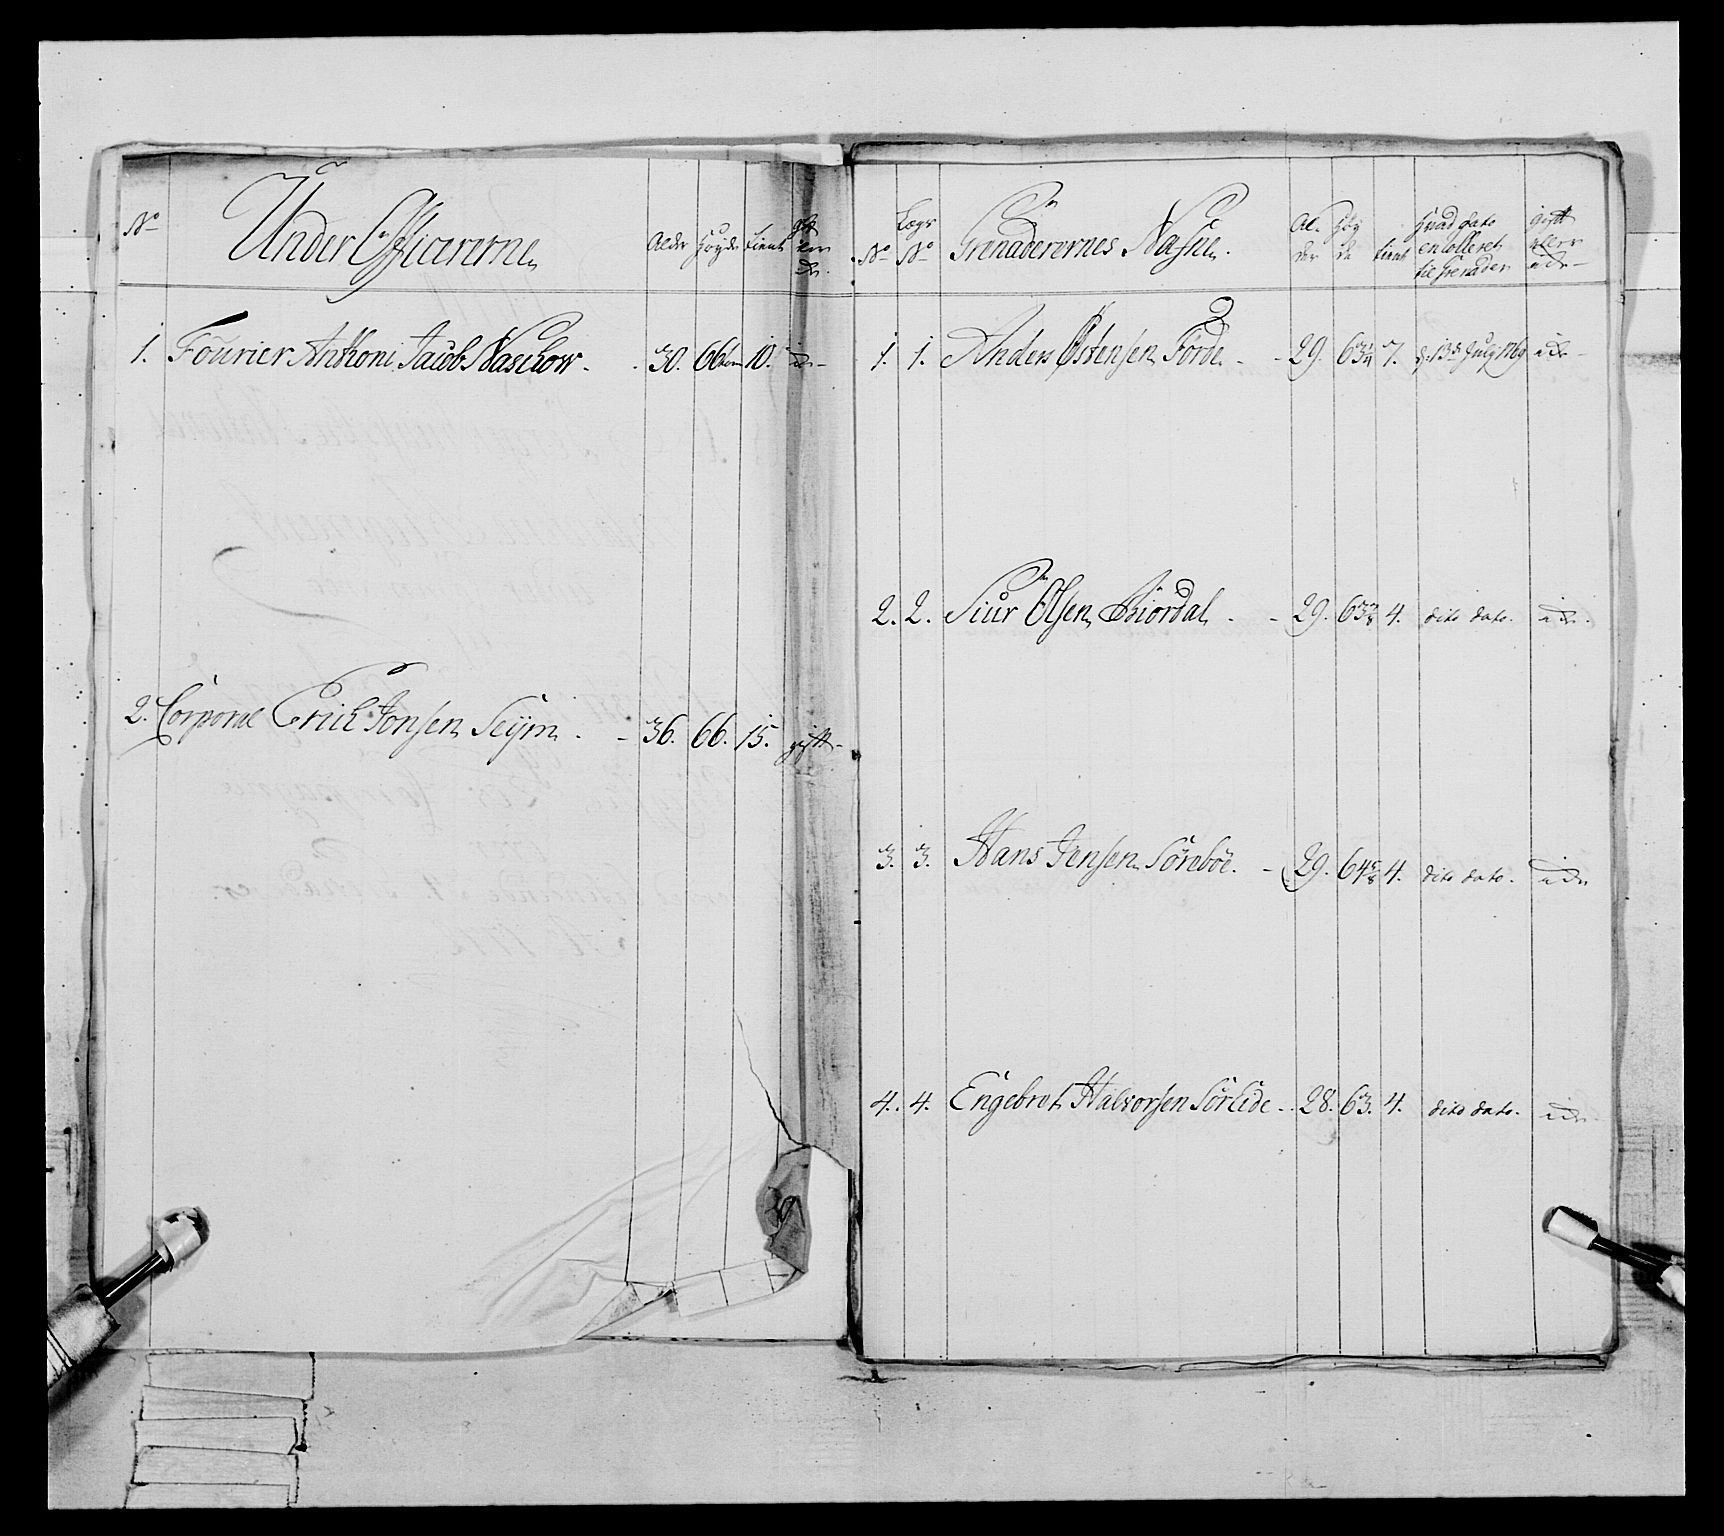 No Under Officererne Alder Høyde tient gift eller
1. Fourier Anthoni Jacob Naschow. 30. 66 10. ude
2. Corporal Erich Jonsen Seÿm. 36. 66. 15. gift
No Lægs No Grenaderernes Nafne. Alder Høyde tient Hvad dato enrolleret til Grenader gift eller ude
1. 1. Anders Østensen Förde. 29. 63 3/4 7. d: 13de July 1769 ude
2. 2. Siur Olsen Biordal. 29. 63 4. dito dato. ude.
3. 3. Hans Jensen Sörebòe. 29. 64 5/8 4. dito dato. ude
4. 4. Engebret Halvorsen Sörlide 28. 63. 4. dito dato. ude